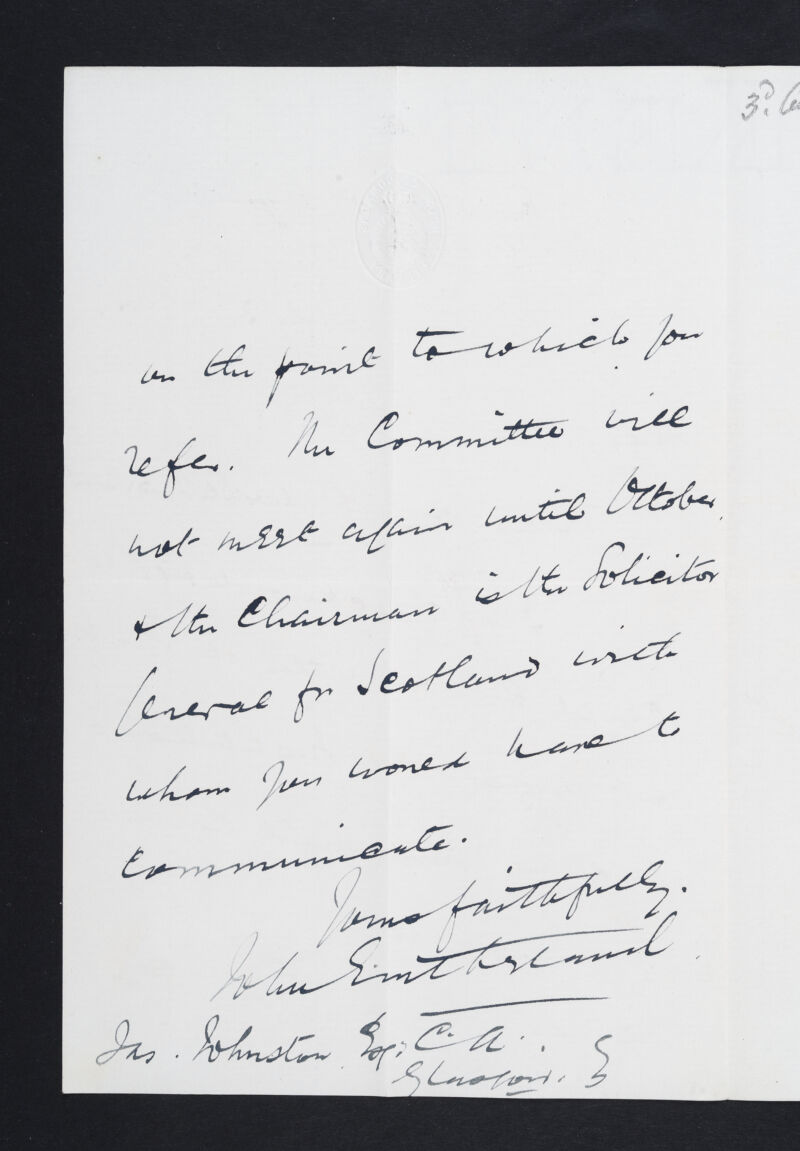 3d.
on the point to which you
refer. The Committee will
not meet again until October
& the Chairman is the Solicitor
General for Scotland with
whom you would have to
communicate.
Yours faithfully.
John
Jas. Johnston Esq: C.A.
Glasgow.